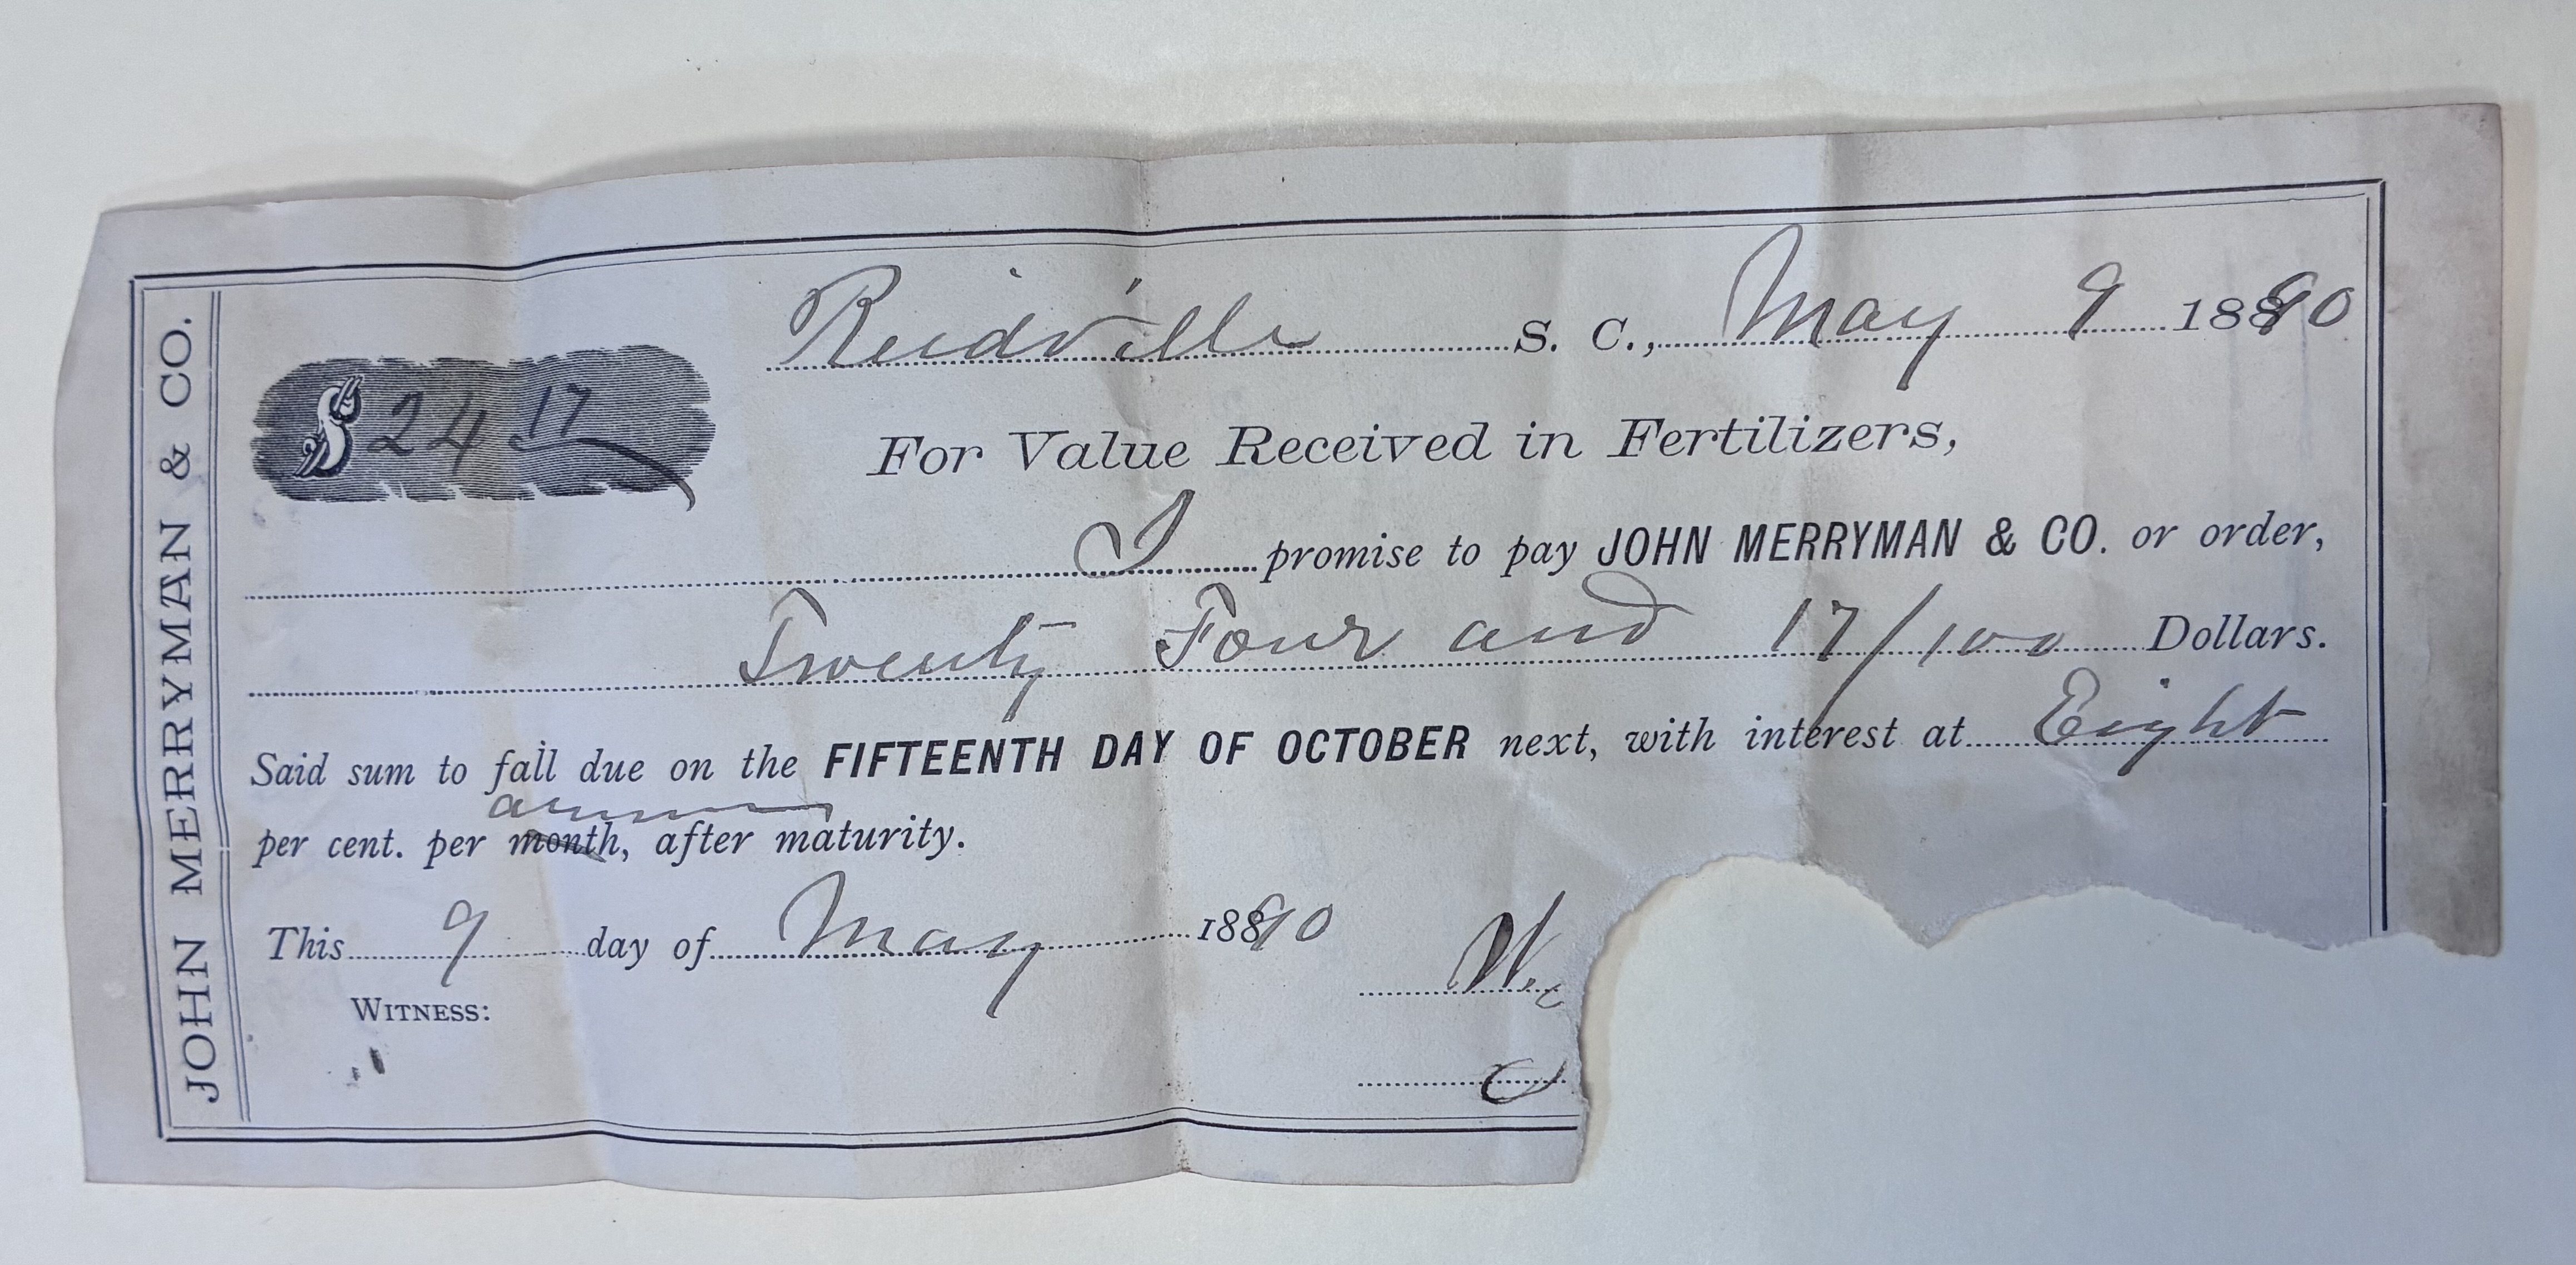 JOHN MERRYMAN & CO.
Reidville S. C., May 9 1890
$ 24 17
For Value Received in Fertilizers,
I promise to pay JOHN MERRYMAN & CO. or order,
Twenty Four and 17/100 Dollars.
Said sum to fall due on the FIFTEENTH DAY OF OCTOBER next, with interest at Eight
annum
per cent. per month, after maturity.
This 9 day of May 1890
W.
WITNESS: